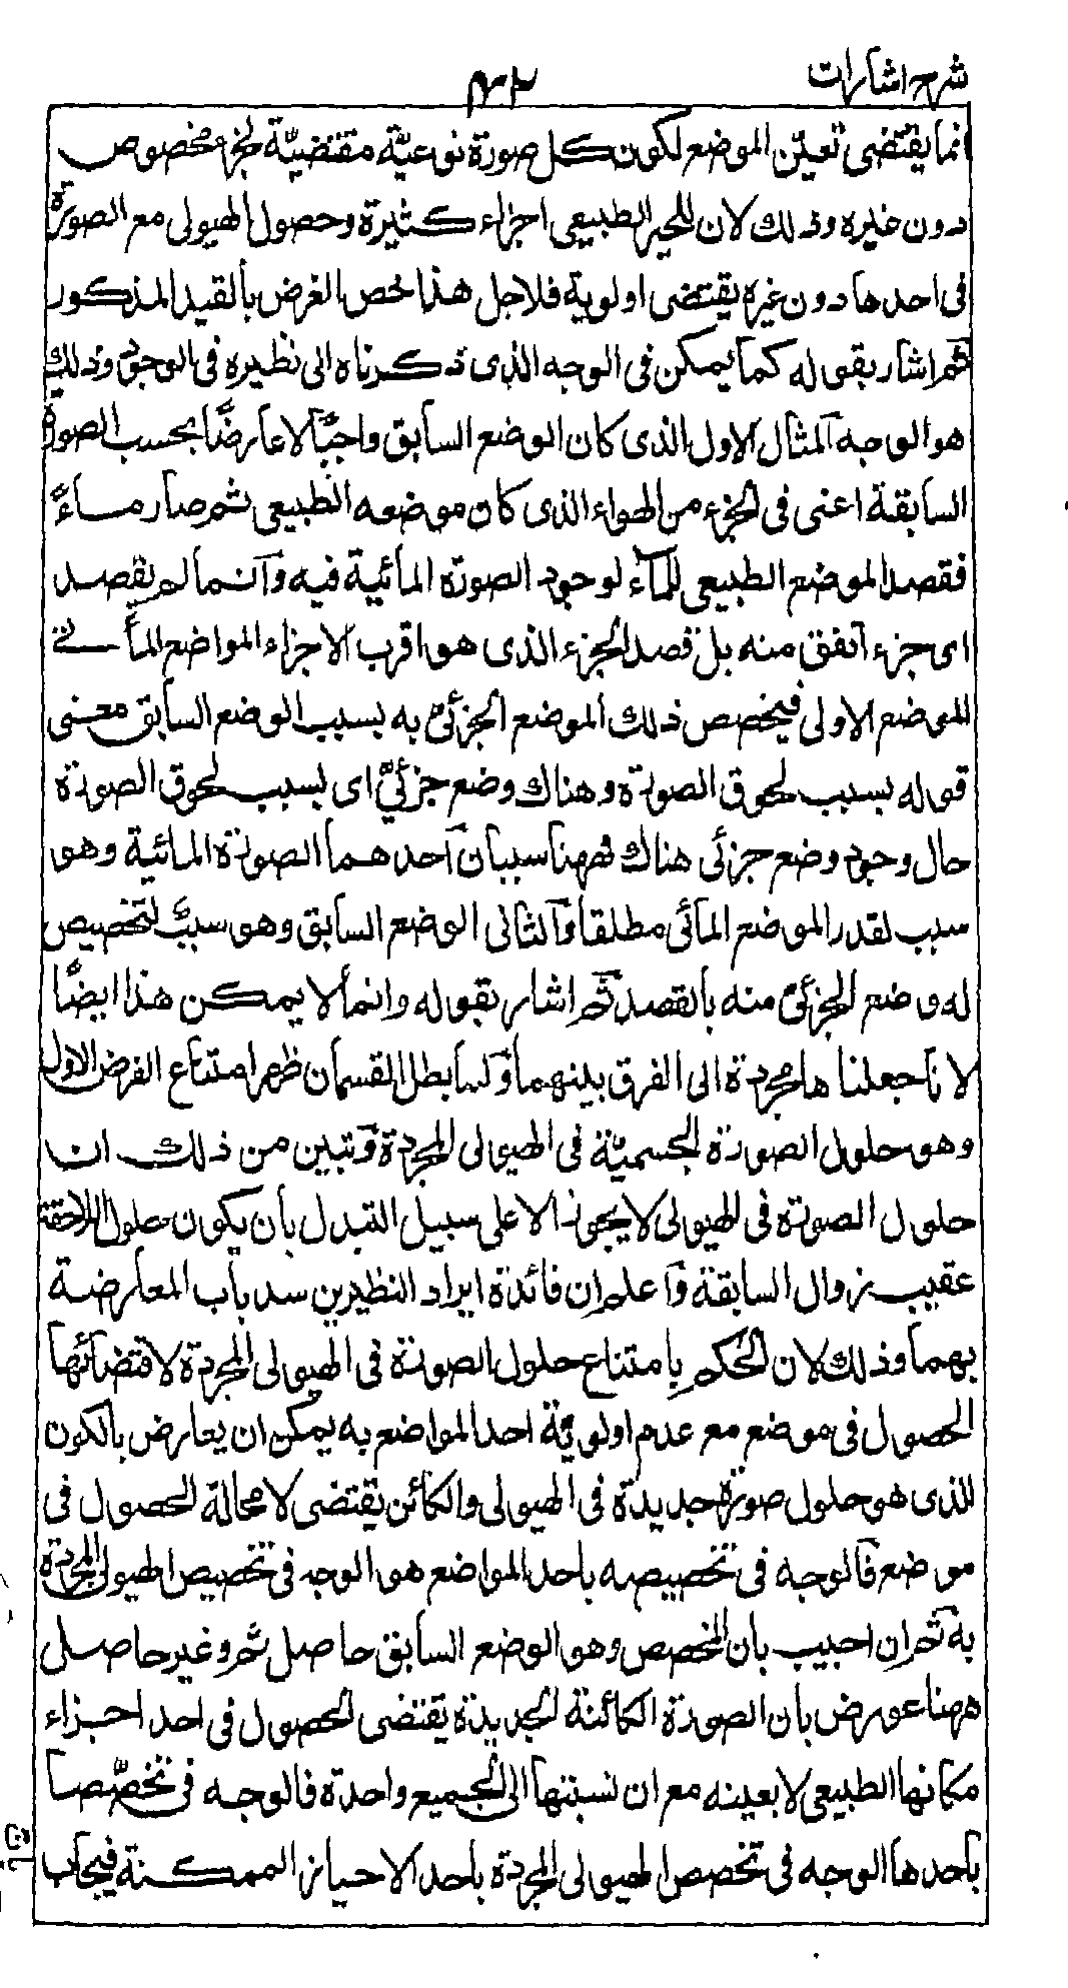 شرح اشارات
٤٢
انما يقتضى تعيّن الموضع لكون كل صورة نوعيّة مقتضيّة لجزء مخصوص
دون غيره وذلك لان للحيز الطبيعى اجزاء كثيرة وحصول الهيولى مع الصورة
فى احدها دون غيره يقتضى اولوية فلاجل هذا خص الغرض بالقيد المذكور
ثم اشار بقوله كما يمكن فى الوجه الذى ذكرناه الى نظيره فى الوجود وذلك
هو الوجه آلمثال الاول الذى كان الوضع السابق واجبًا لا عارضًا بحسب الصورة
السابقة اعنى فى الجزء من الهواء الذى كان موضعه الطبيعى ثم صار ماءً
فقصد الموضع الطبيعى للماء لوجود الصورة المائية فيه وآنما لم يقصد
اى جزء اتفق منه بل قصد الجزء الذى هو اقرب الاجزاء المواضع المائى
للموضع الاولى فيخصص ذلك الموضع الجزئى به بسبب الوضع السابق معنى
قوله بسبب لحوق الصورة وهناك وضع جزئى اى بسبب لحوق الصورة
حال وجود وضع جزئى هناك فههنا سببان آحدهما الصورة المائية وهو
سبب لقدر الموضع المائى مطلقا وآلثانى الوضع السابق وهو سبب لتخصيص
له وضع الجزئى منه بالقصد ثم اشار بقوله وانما لا يمكن هذا ايضًا
لانا جعلناها مجردة الى الفرق بينهما ولما بطل القسمان ظهر امتناع الفرض الاول
وهو حلول الصورة الجسميّة فى الهيولى المجردة وتبين من ذلك ان
حلول الصورة فى الهيولى لا يجوز الا على سبيل التبدل بان يكون حلول اللاحقة
عقيب زوال السابقة وآعلم ان فائدة ايراد النظيرين سد باب المعارضة
بهما وذلك لان الحكم بامتناع حلول الصورة فى الهيولى المجردة لاقتضائها
الحصول فى موضع مع عدم اولويّة احد المواضع به يمكن ان يعارض بالكون
الذى هو حلول صورة جديدة فى الهيولى والكائن يقتضى لا محالة الحصول فى
موضع فآلوجه فى تخصيصه باحد المواضع هو الوجه فى تخصيص الهيولى المجردة
به ثم ان اجيب بان المخصص وهو الوضع السابق حاصل ثم وغير حاصل
ههنا عورض بان الصورة الكائنة الجديدة يقتضى الحصول فى احد اجزاء
مكانها الطبيعى لا بعينه مع ان نسبتها الى الجميع واحدة فالوجه فى تخصّصها
باحدها الوجه فى تخصص الهيولى المجردة باحد الاحياز الممكنة فيجاب